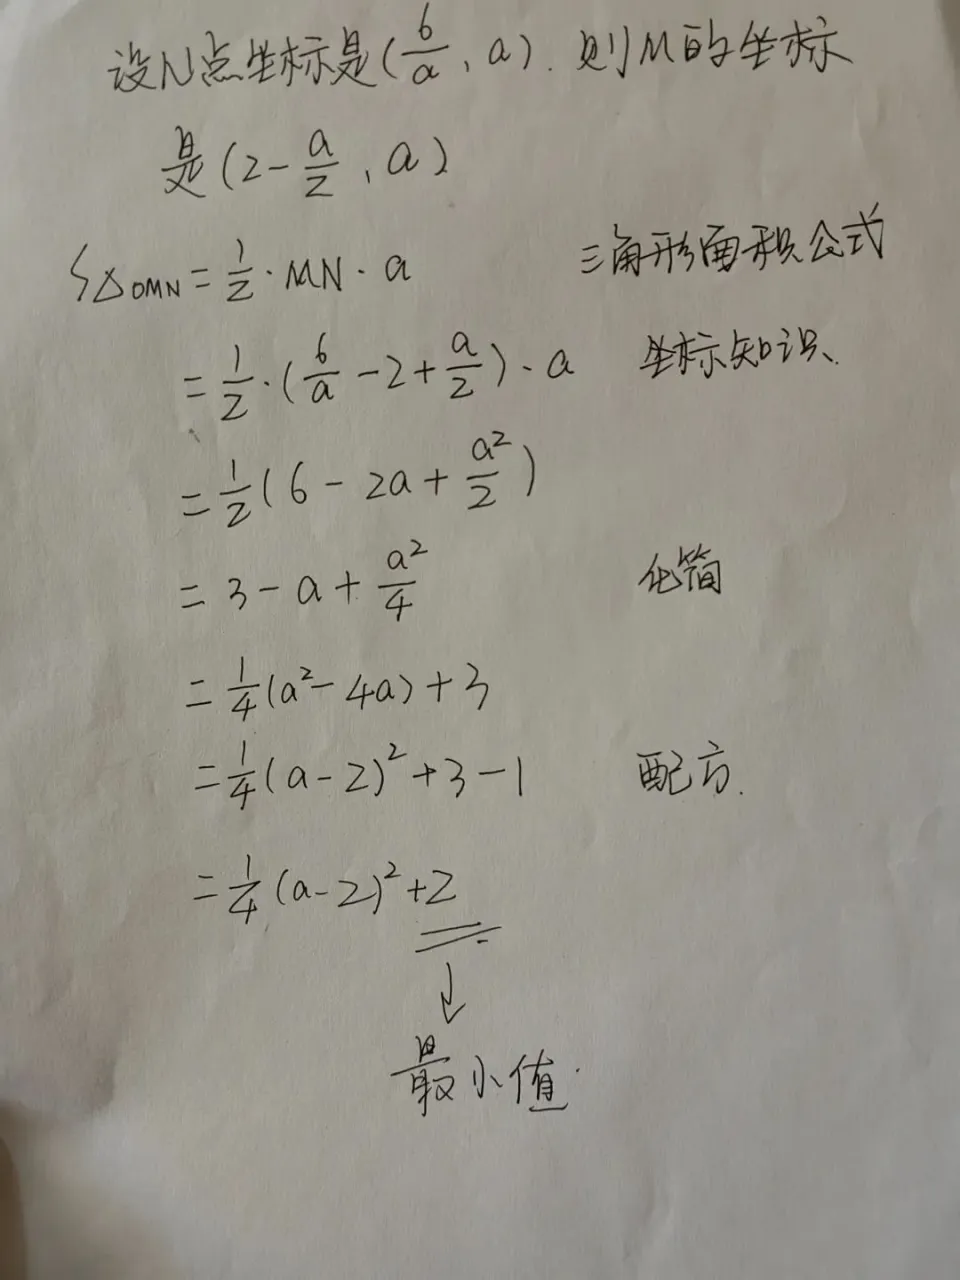 设N点坐标是(6/a,a).则M的坐标
是(2-a/2,a)
S△OMN=1/2·MN·a 三角形面积公式
=1/2·(6/a-2+a/2)·a 坐标知识、
=1/2(6-2a+a²/2)
=3-a+a²/4 化简
=1/4(a²-4a)+3
=1/4(a-2)²+3-1 配方.
=1/4(a-2)²+2
↓
最小值.